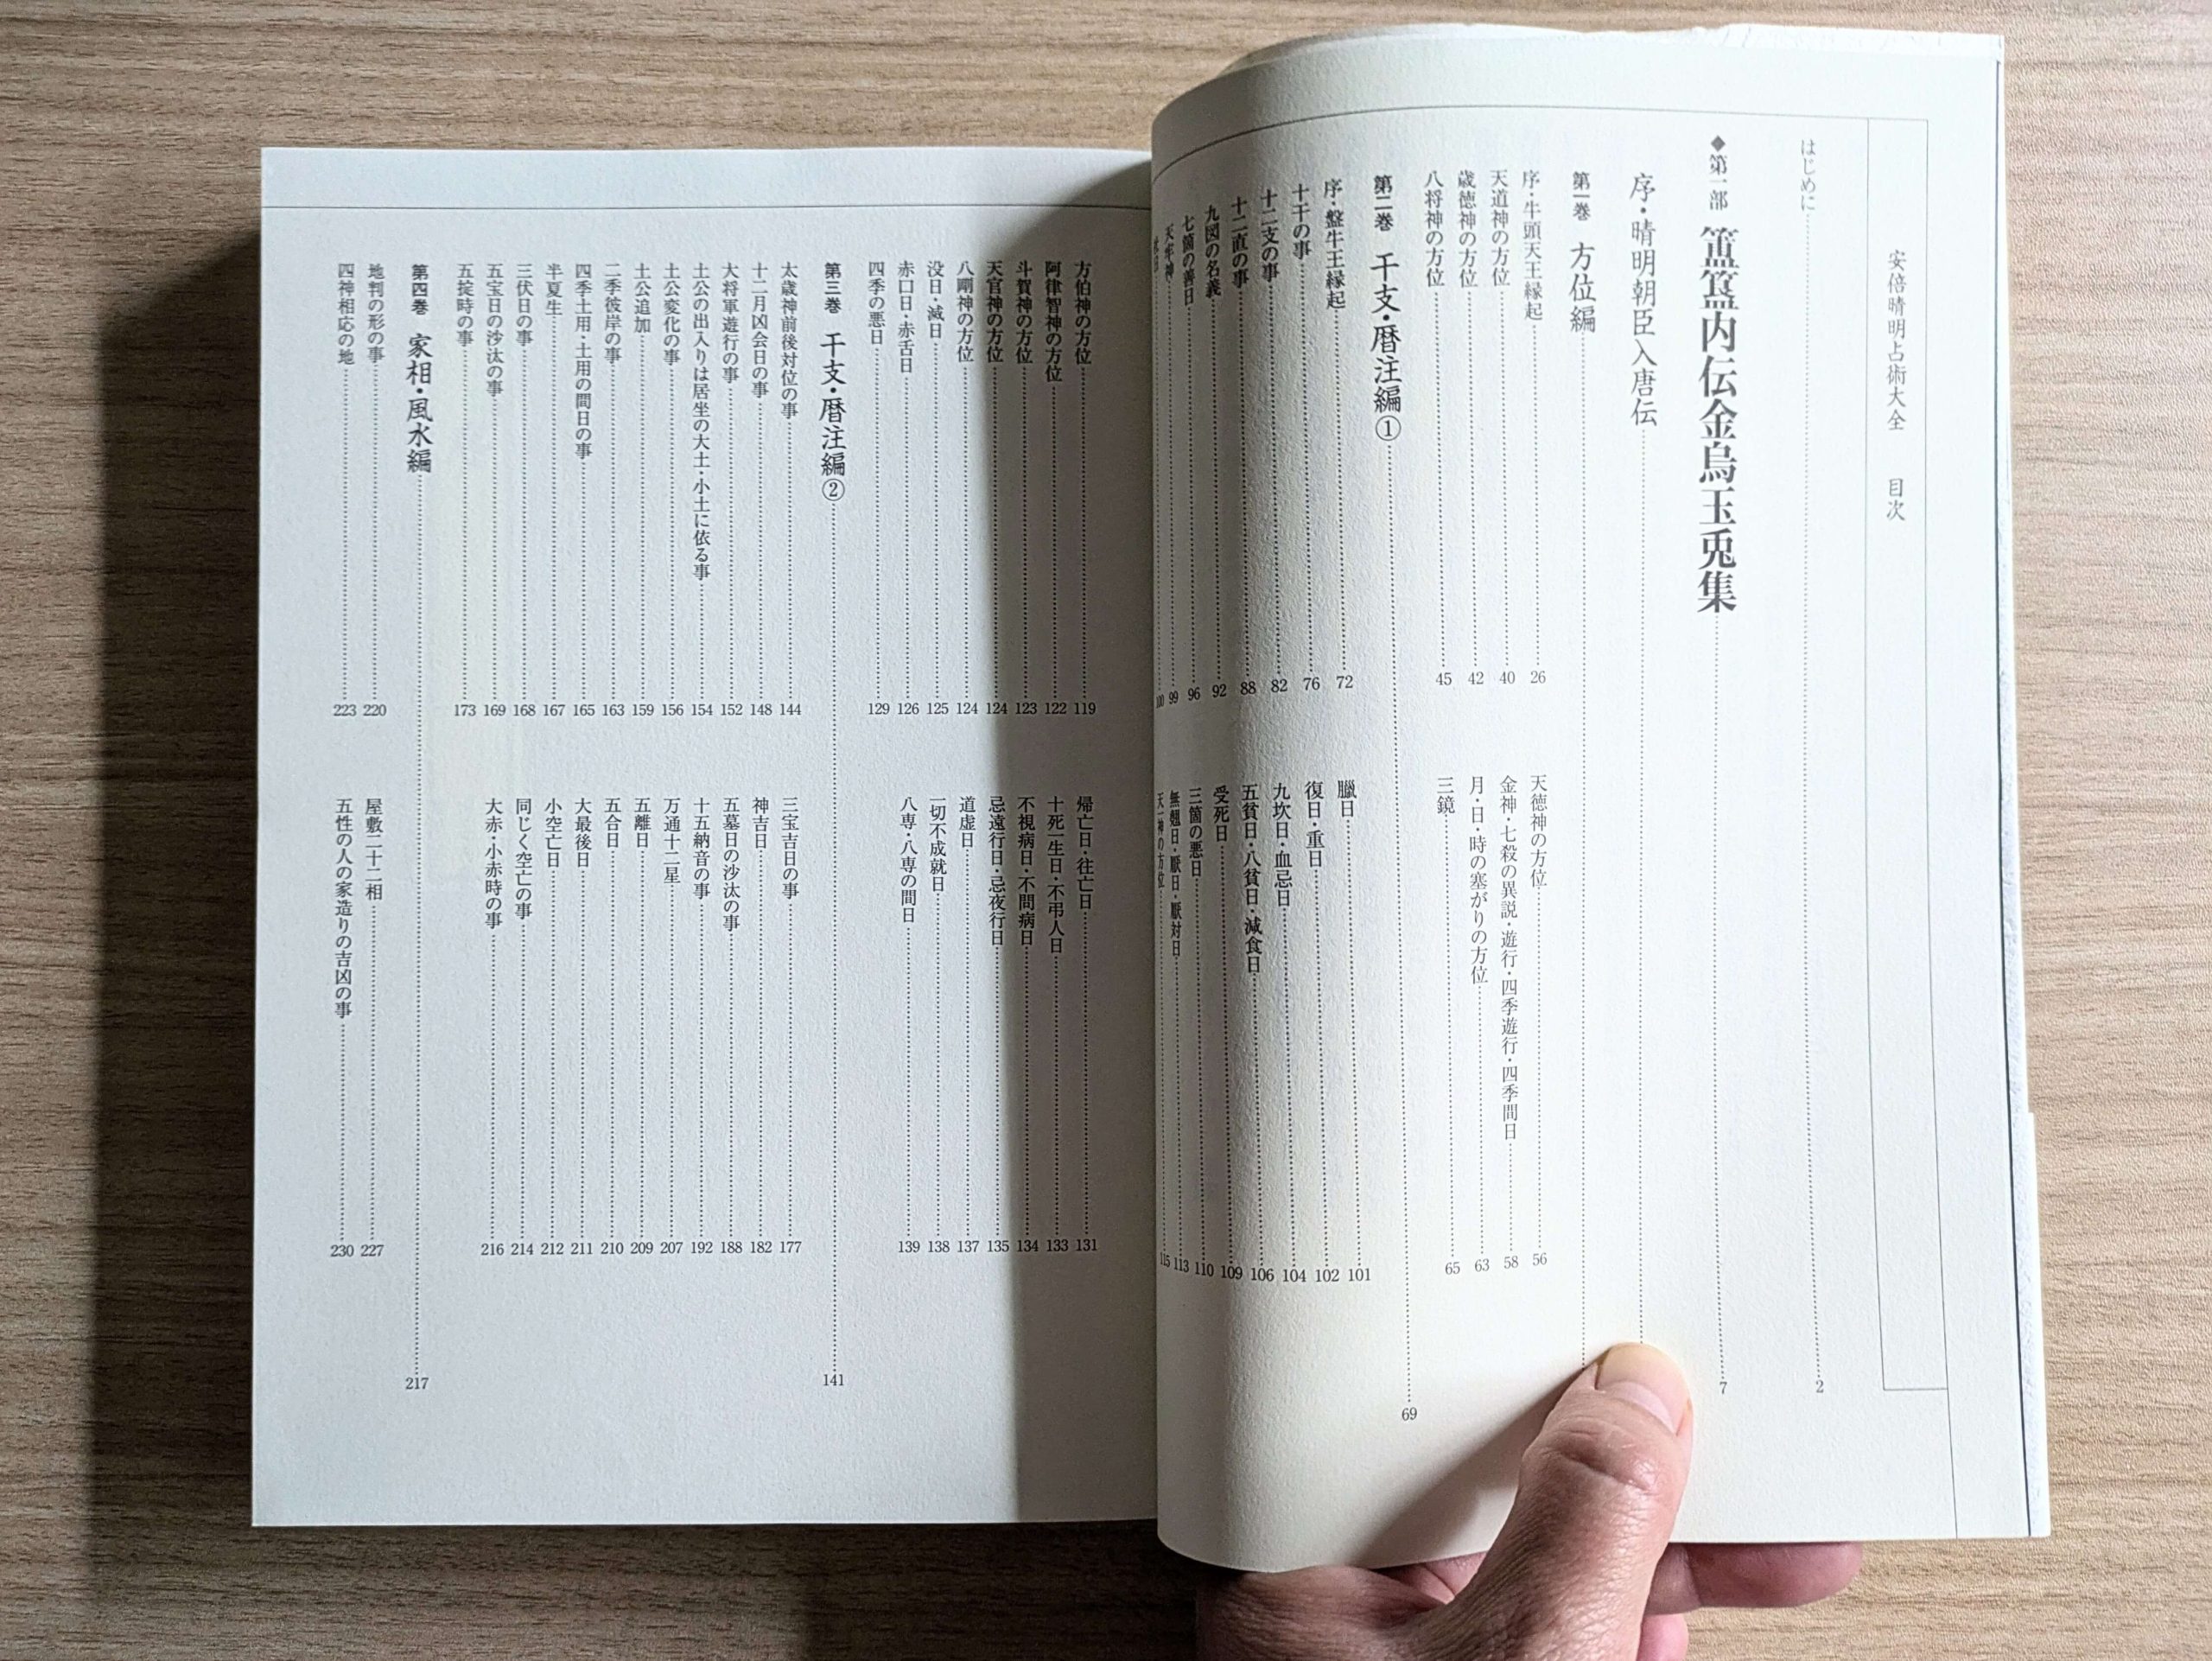 安倍晴明占術大全 目次
はじめに 2
◆第一部 簠簋内伝金烏玉兎集 7
序・晴明朝臣入唐伝
第一巻 方位編
序・牛頭天王縁起 26
天道神の方位 40
歳徳神の方位 42
八将神の方位 45
天徳神の方位 56
金神・七殺の異説・遊行・四季遊行・四季間日 58
月・日・時の塞がりの方位 63
三鏡 65
第二巻 干支・暦注編① 69
序・盤牛王縁起 72
十干の事 76
十二支の事 82
十二直の事 88
九図の名義 92
七箇の善日 96
天牢神 99
100
臘日 101
復日・重日 102
九坎日・血忌日 104
五貧日・八貧日・減食日 106
受死日 109
三箇の悪日 110
無翹日・厭日・厭対日 113
天一神の方位 115
方伯神の方位 119
阿律智神の方位 122
斗賀神の方位 123
天官神の方位 124
八剛神の方位 124
没日・滅日 125
赤口日・赤舌日 126
四季の悪日 129
帰亡日・往亡日 131
十死一生日・不弔人日 133
不視病日・不問病日 134
忌遠行日・忌夜行日 135
道虚日 137
一切不成就日 138
八専・八専の間日 139
第三巻 干支・暦注編② 141
太歳神前後対位の事 144
十二月凶会日の事 148
大将軍遊行の事 152
土公の出入りは居坐の大土・小土に依る事 154
土公変化の事 156
土公追加 159
二季彼岸の事 163
四季土用・土用の間日の事 165
半夏生 167
三伏日の事 168
五宝日の沙汰の事 169
五掟時の事 173
三宝吉日の事 177
神吉日 182
五墓日の沙汰の事 188
十五納音の事 192
万通十二星 207
五離日 209
五合日 210
大最後日 211
小空亡日 212
同じく空亡の事 214
大赤・小赤時の事 216
第四巻 家相・風水編 217
地判の形の事 220
四神相応の地 223
屋敷二十二相 227
五性の人の家造りの吉凶の事 230